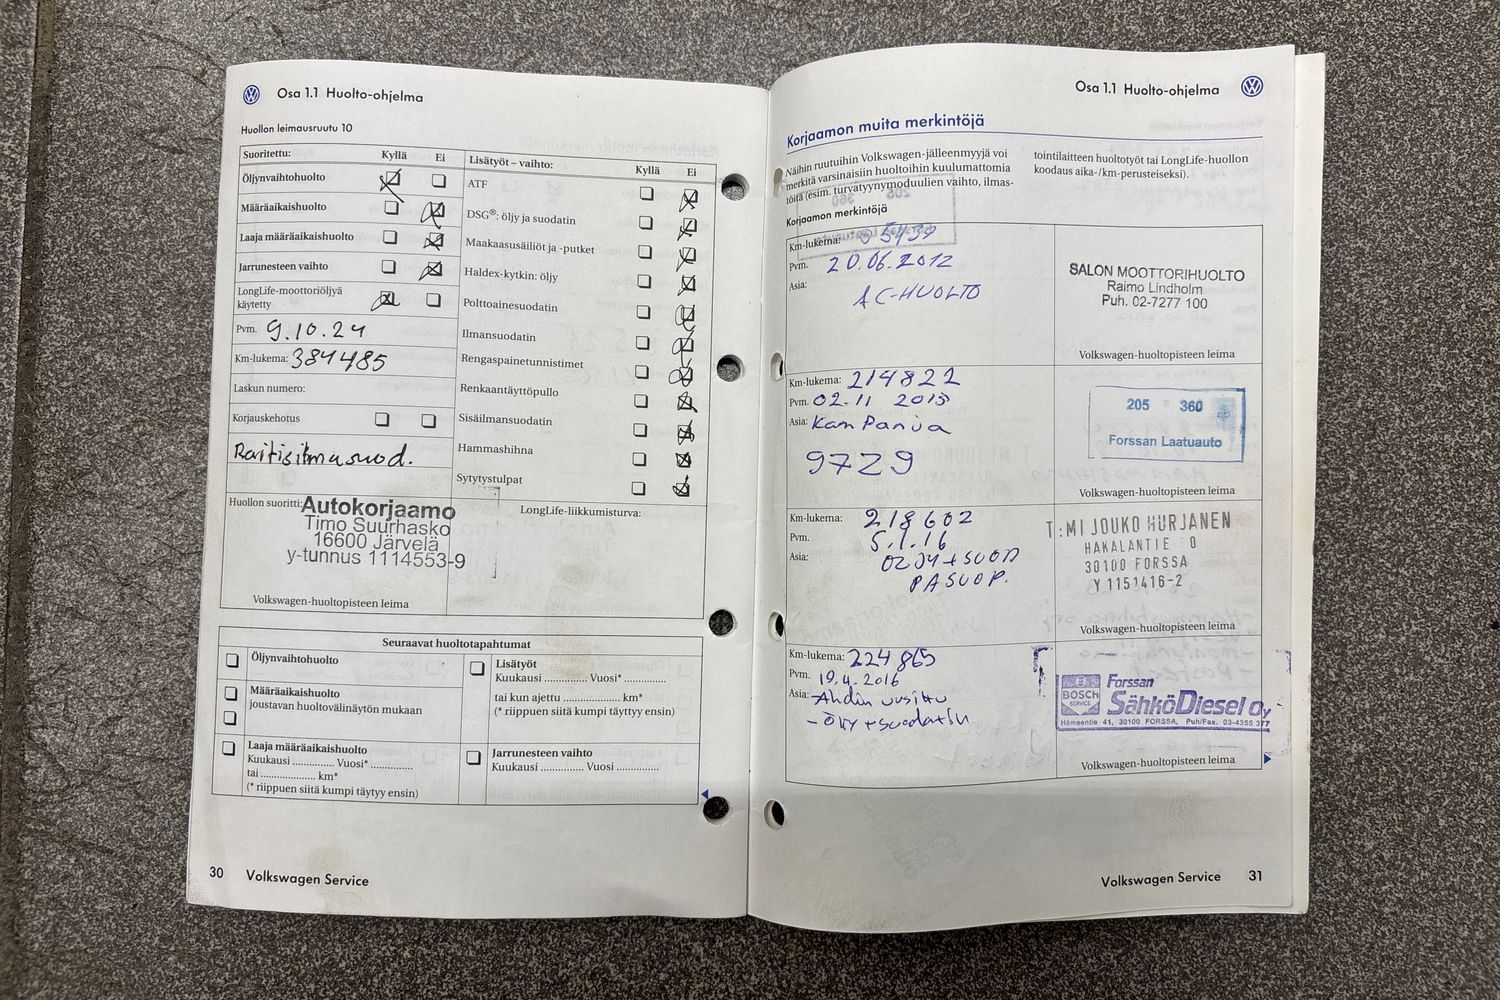 Osa 1.1 Huolto-ohjelma
Huollon leimausruutu 10
Suoritettu: Kyllä Ei
Öljynvaihtohuolto
Määräaikaishuolto
Laaja määräaikaishuolto
Jarrunesteen vaihto
LongLife-moottoriöljyä
käytetty
Pvm. 9.10.24
Km-lukema: 384485
Laskun numero:
Korjauskehotus
Raitisilmasuod.
Huollon suoritti:
Autokorjaamo
Timo Suurhasko
16600 Järvelä
y-tunnus 1114553-9
Volkswagen-huoltopisteen leima
Lisätyöt – vaihto: Kyllä Ei
ATF
DSG®: öljy ja suodatin
Maakaasusäiliöt ja -putket
Haldex-kytkin: öljy
Polttoainesuodatin
Ilmansuodatin
Rengaspainetunnistimet
Renkaantäyttöpullo
Sisäilmansuodatin
Hammashihna
Sytytystulpat
LongLife-liikkumisturva:
Seuraavat huoltotapahtumat
Öljynvaihtohuolto
Määräaikaishuolto
joustavan huoltovälinäytön mukaan
Laaja määräaikaishuolto
Kuukausi .............. Vuosi* ..............
tai .................... km*
(* riippuen siitä kumpi täytyy ensin)
Lisätyöt
Kuukausi .............. Vuosi* ..............
tai kun ajettu .................... km*
(* riippuen siitä kumpi täyttyy ensin)
Jarrunesteen vaihto
Kuukausi .............. Vuosi ..............
30 Volkswagen Service
Osa 1.1 Huolto-ohjelma
Korjaamon muita merkintöjä
Näihin ruutuihin Volkswagen-jälleenmyyjä voi
merkitä varsinaisiin huoltoihin kuulumattomia
töitä (esim. turvatyynymoduulien vaihto, ilmas-
tointilaitteen huoltotyöt tai LongLife-huollon
koodaus aika-/km-perusteiseksi).
Korjaamon merkintöjä
Km-lukema:
Pvm. 20.06.2012
Asia: AC-HUOLTO
SALON MOOTTORIHUOLTO
Raimo Lindholm
Puh. 02-7277 100
Volkswagen-huoltopisteen leima
Km-lukema: 214822
Pvm. 02.11 2015
Asia: Kampanja
9729
205 360
Forssan Laatuauto
Volkswagen-huoltopisteen leima
Km-lukema: 218602
Pvm. 5.1.16
Asia:
T:MI JOUKO HURJANEN
HAKALANTIE
30100 FORSSA
Y 1151416-2
Volkswagen-huoltopisteen leima
Km-lukema: 224865
Pvm. 19.4.2016
Asia: -Ahdin uusittu
BOSCH
SERVICE
Forssan
SähköDiesel Oy
Hämeentie 41, 30100 FORSSA, Puh/Fax. 03-4355 377
Volkswagen-huoltopisteen leima
Volkswagen Service 31